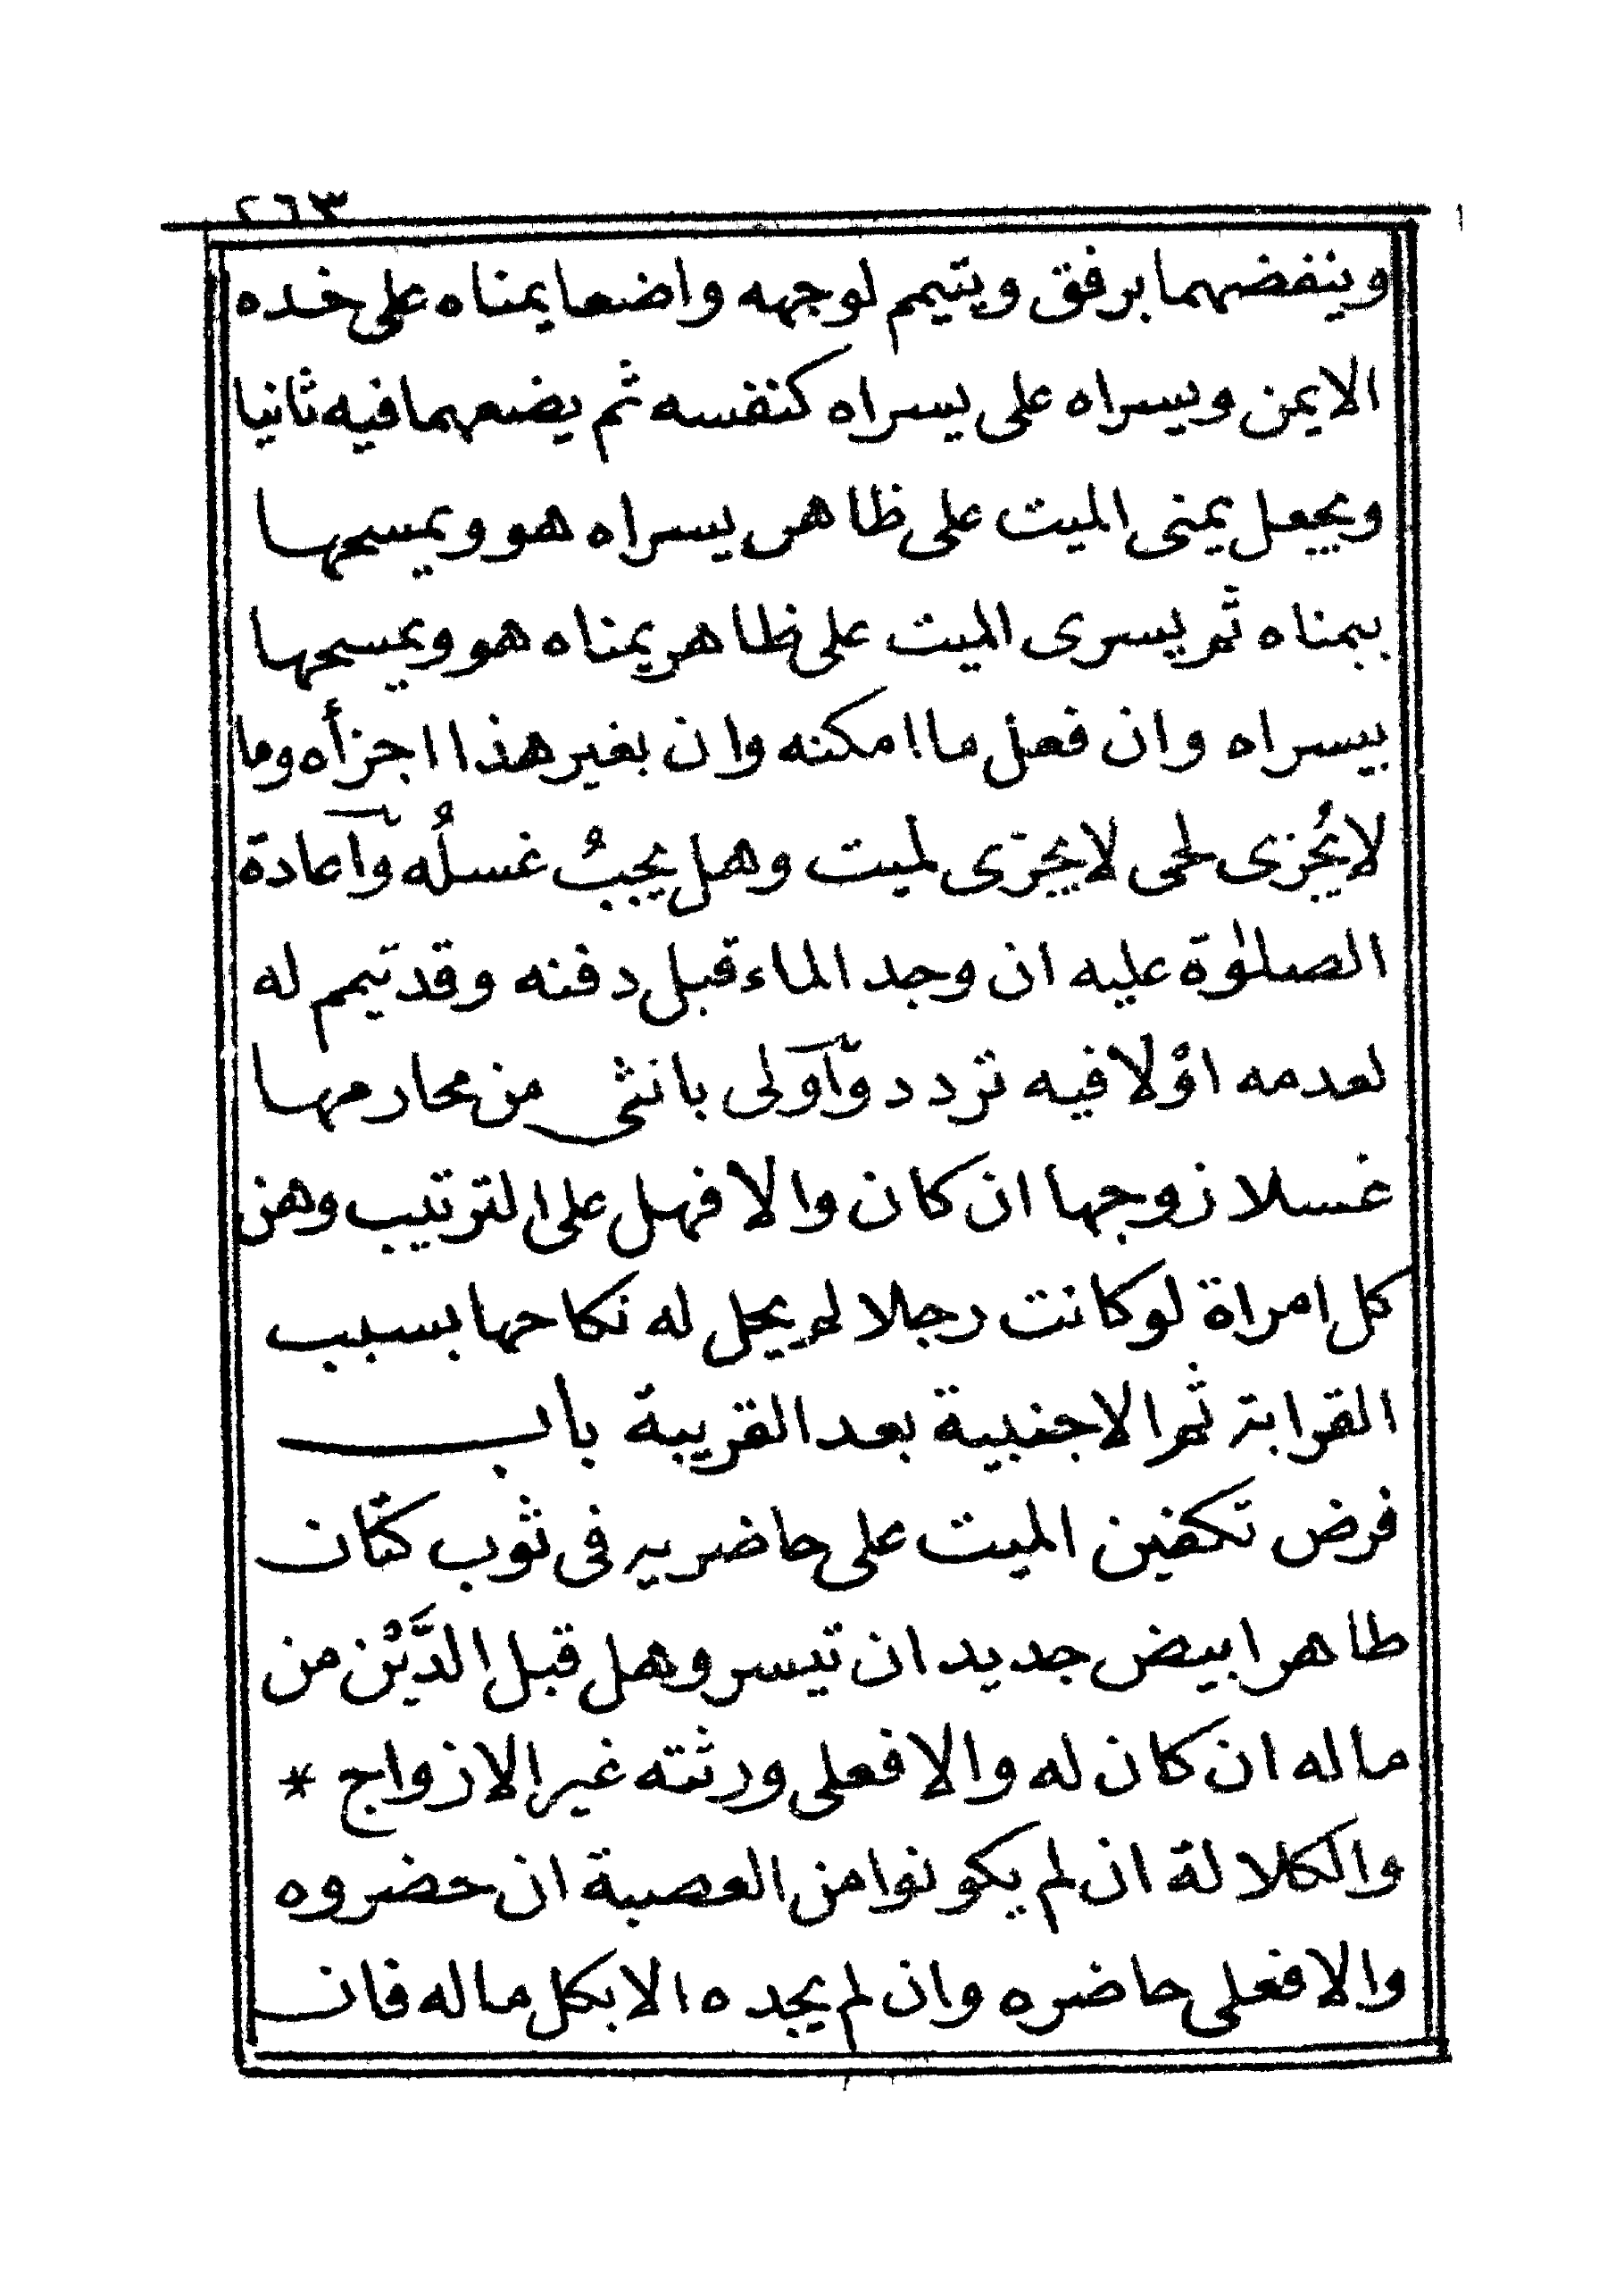 ٢٦٣
وينفضهما برفق ويتيمم لوجهه واضعا يمناه على خده
الايمن ويسراه على يسراه كنفسه ثم يضعهما فيه ثانيا
ويجعل يمنى الميت على ظاهر يسراه هو ويمسحها
بيمناه ثم يسرى الميت على ظاهر يمناه هو ويمسحها
بيسراه وان فعل ما امكنه وان بغير هذا اجزأه وما
لا يُجزى لحى لا يجزى لميت وهل يجبُ غسلُه وآعادة
الصلوة عليه ان وجد الماء قبل دفنه وقد تيمم له
لعدمه اوْلا فيه تردد وآولى بانثى من محارمها
غسلا زوجها ان كان والا فهل على الترتيب وهن
كل امراة لو كانت رجلا لم يحل له نكاحها بسبب
القرابة ثم الاجنبية بعد القريبة باب
فرض تكفين الميت على حاضريه فى ثوب كتّان
طاهر ابيض جديد ان تيسر وهل قبل الدَّيْن من
ماله ان كان له والا فعلى ورثته غير الازواج *
والكلالة ان لم يكونوا من العصبة ان حضروه
والا فعلى حاضره وان لم يجده الا بكل ماله فان